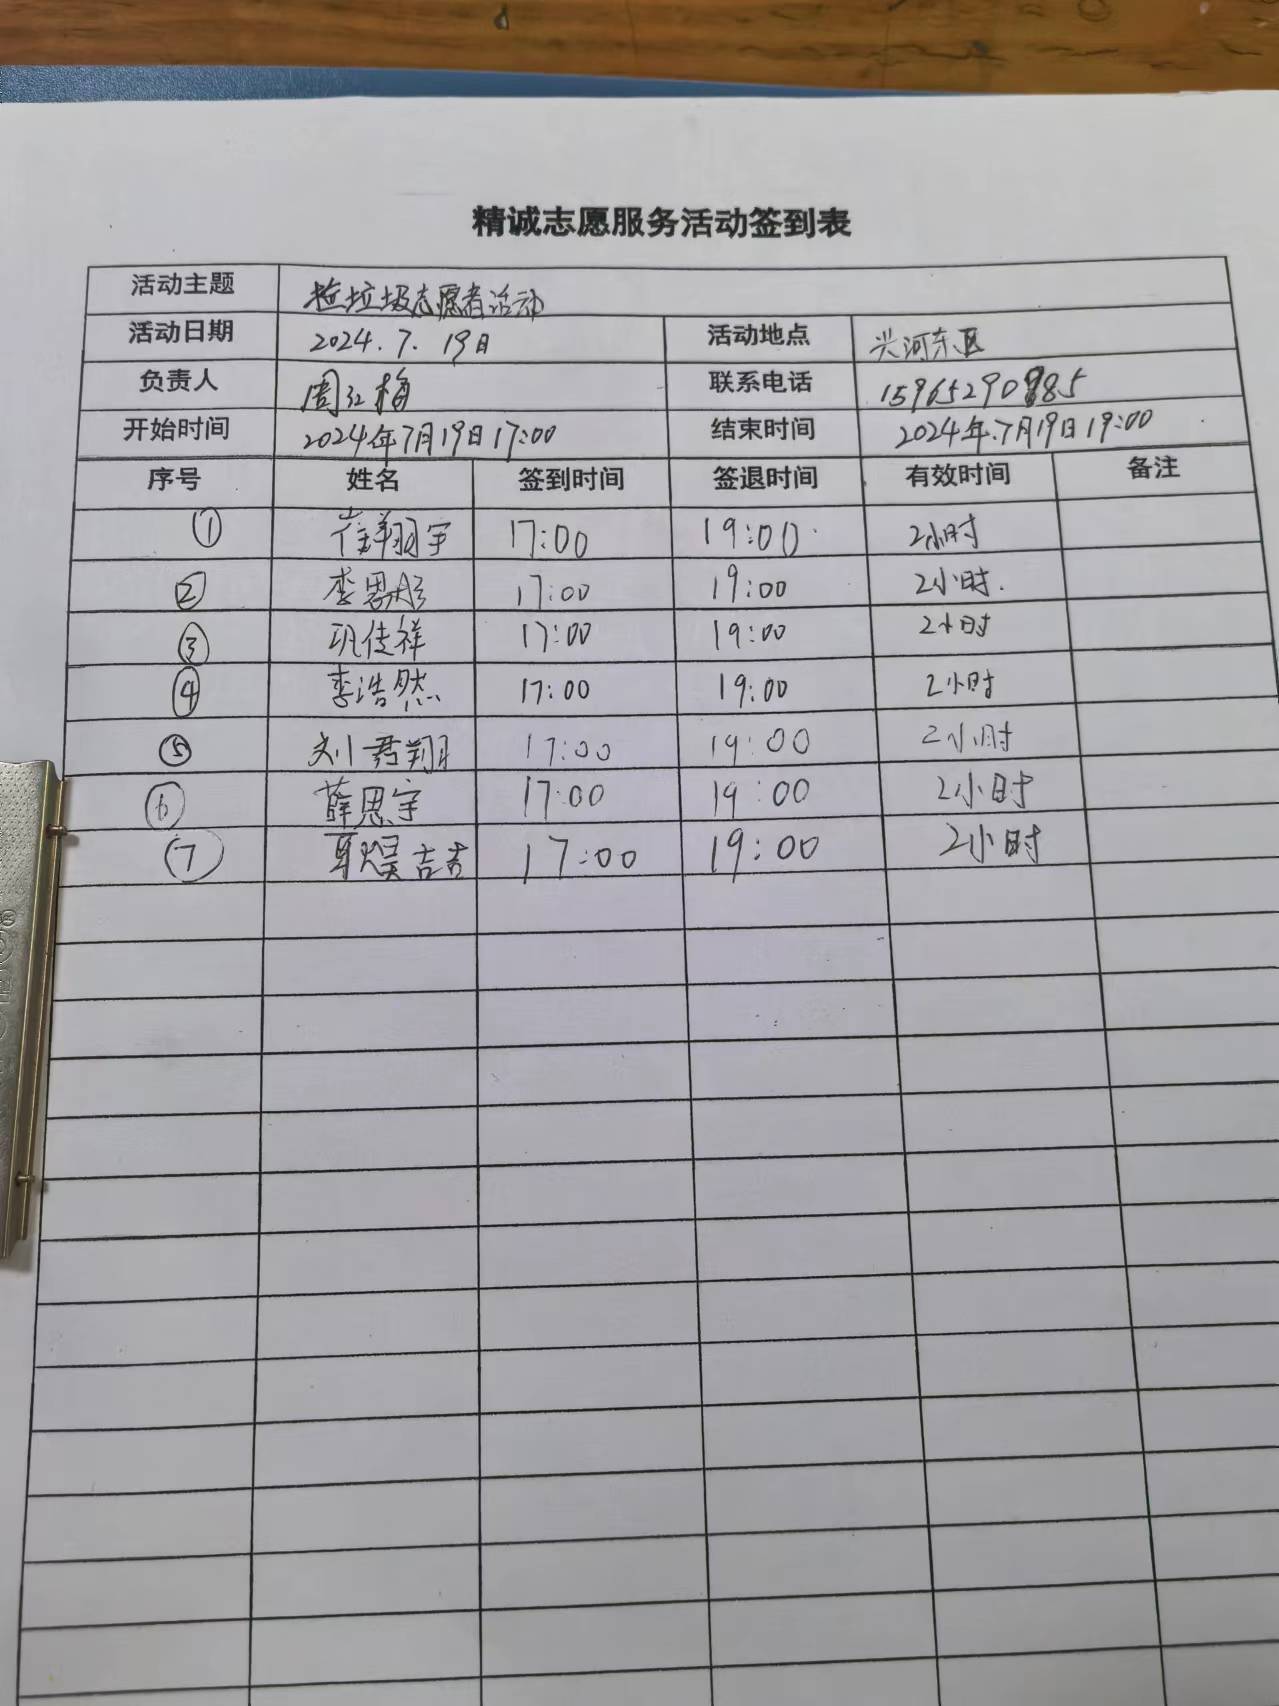 精诚志愿服务活动签到表
活动主题 捡垃圾志愿者活动
活动日期 2024.7.19日 活动地点 兴河东区
负责人 周红梅 联系电话
开始时间 2024年7月19日17:00 结束时间 2024年7月19日19:00
序号 姓名 签到时间 签退时间 有效时间 备注
① 崔翔宇 17:00 19:00 2小时
② 李恩彤 17:00 19:00 2小时.
③ 巩佳祥 17:00 19:00 2小时
④ 李浩然 17:00 19:00 2小时
⑤ 刘君翔 17:00 19:00 2小时
⑥ 薛思宇 17:00 19:00 2小时
⑦ 17:00 19:00 2小时